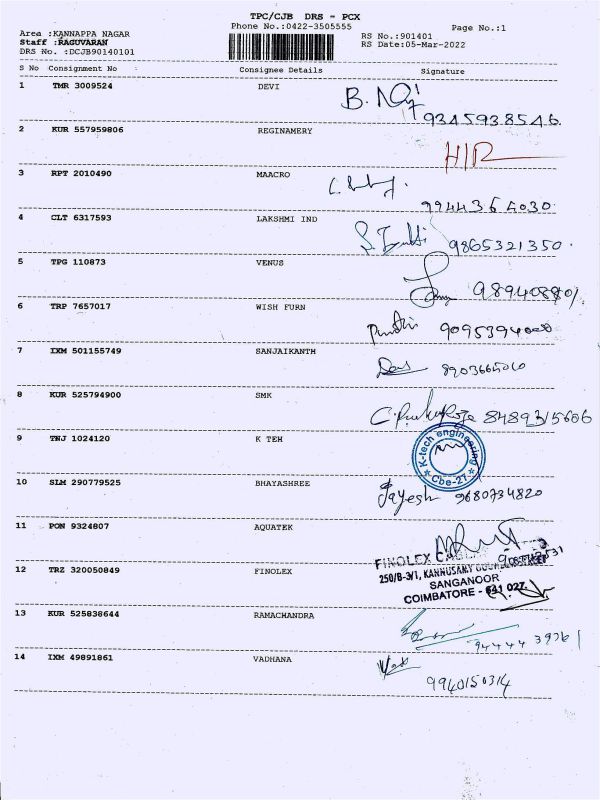 TPC/CJB DRS - PCX
Phone No.:0422-3505555
Page No.:1
Area :KANNAPPA NAGAR
RS No.:901401
Staff :RAGUVARAN
RS Date:05-Mar-2022
DRS No. :DCJB90140101
S No Consignment No Consignee Details Signature
1 TMR 3009524 DEVI
9345938546
2 KUR 557959806 REGINAMERY
H/R
3 RPT 2010490 MAACRO
9944365030
4 CLT 6317593 LAKSHMI IND
9865321350
5 TPG 110873 VENUS
6 TRP 7657017 WISH FURN
7 IXM 501155749 SANJAIKANTH
8 KUR 525794900 SMK
8489315606
9 TNJ 1024120 K TEH
K-tech engineering
Cbe-27
10 SLM 290779525 BHAYASHREE
Jayesh 9680734820
11 PON 9324807 AQUATEK
FINOLEX
12 TRZ 320050849 FINOLEX
250/B-3/1, KANNUSAMY
SANGANOOR
COIMBATORE - 641 027.
13 KUR 525838644 RAMACHANDRA
94444 39761
14 IXM 49891861 VADHANA
9940150314